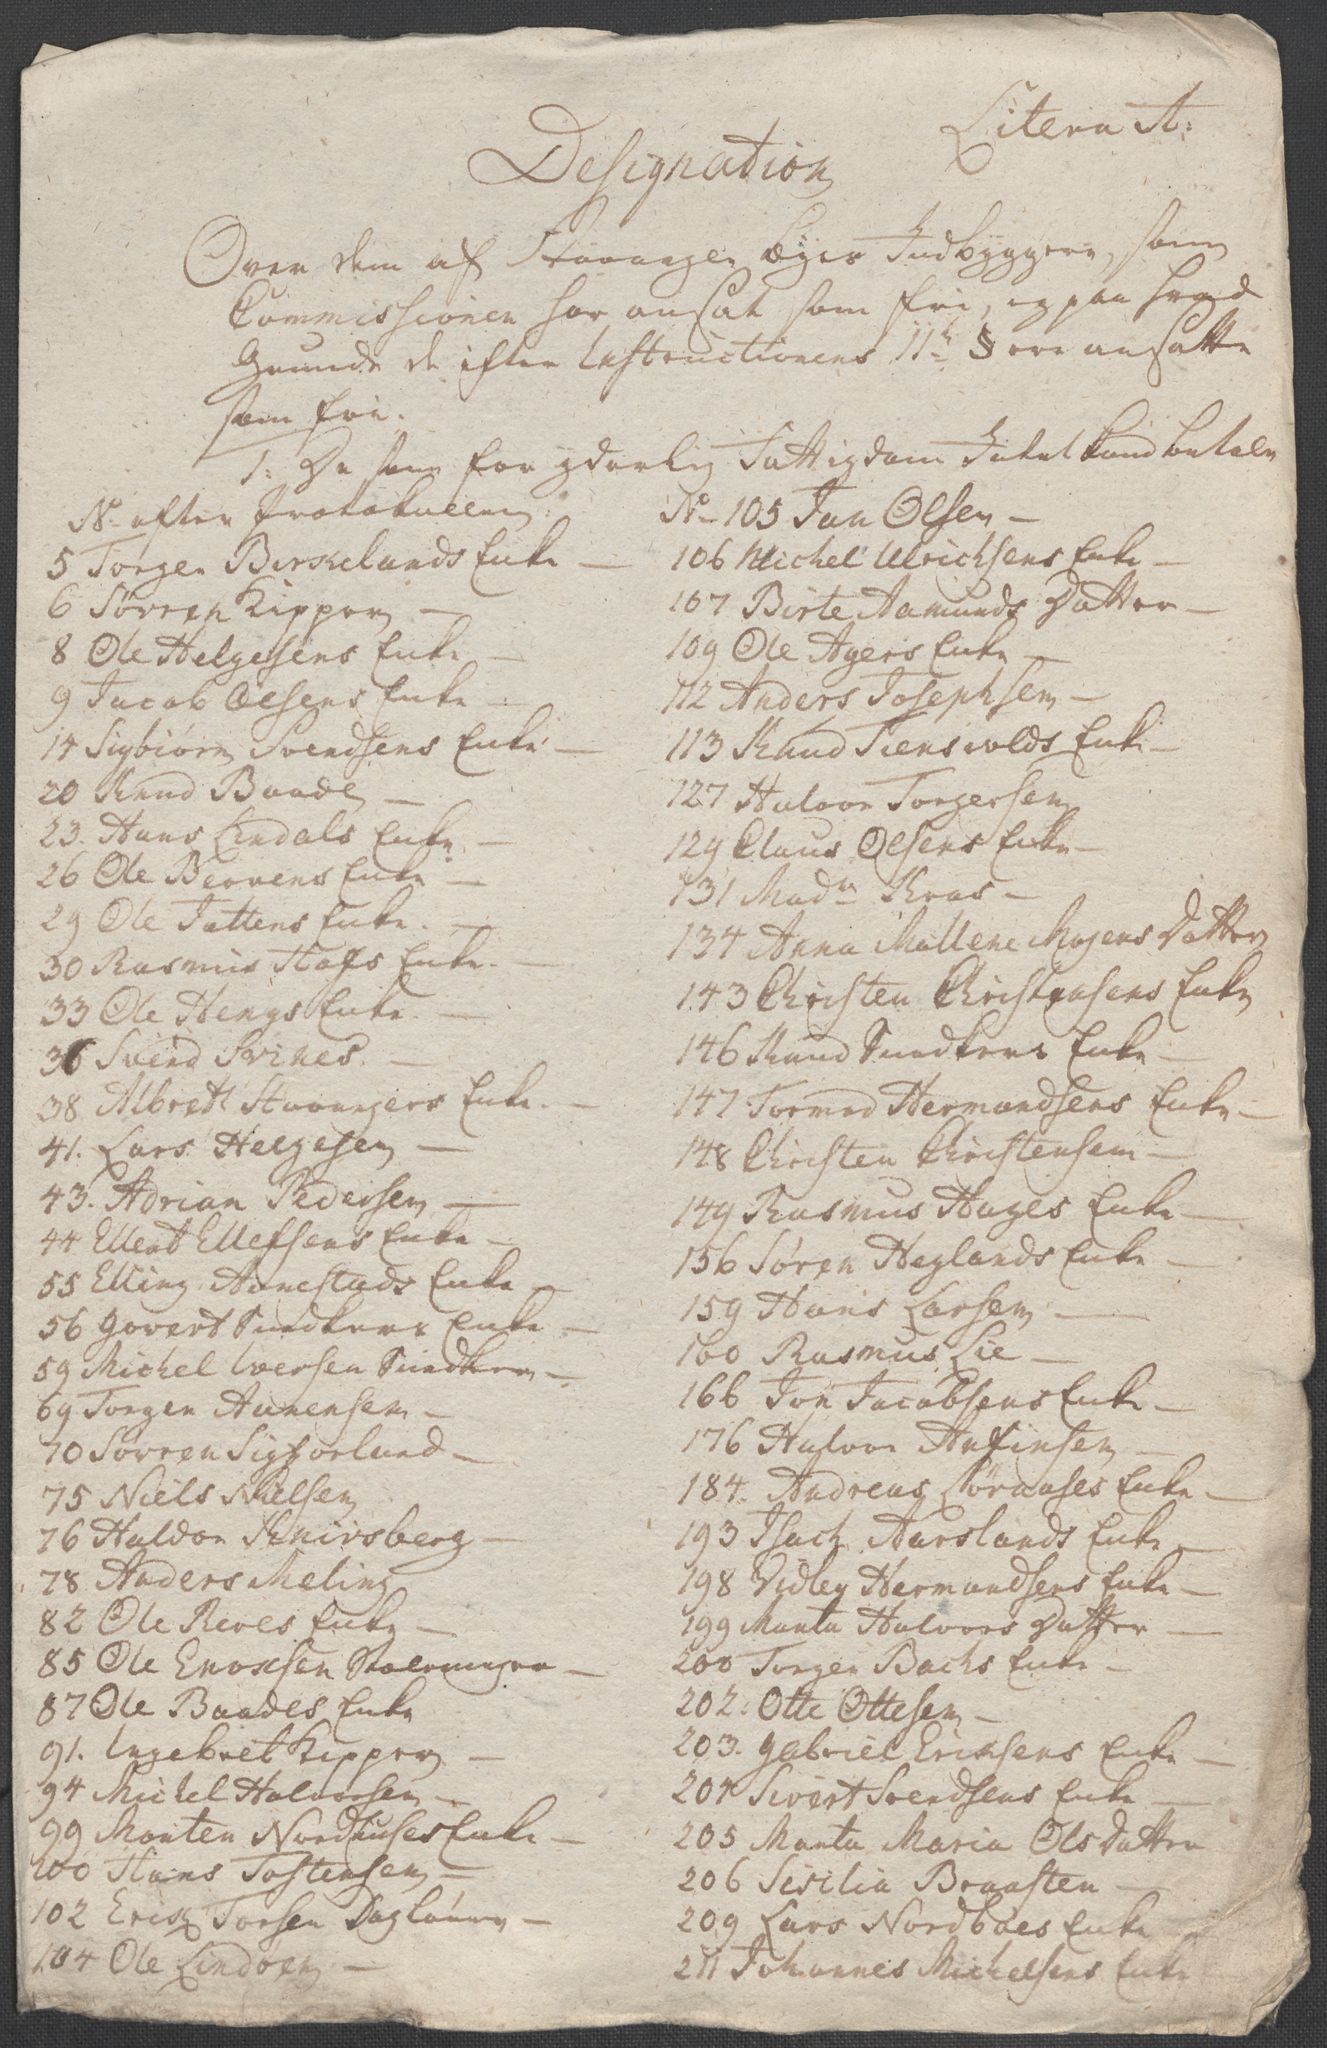 Litera A:
Designation
Over dem af Stavanger Byes Indbyggere, som
Commissionen har ansat som frie, og paa hvad
Grunde de efter Instructionens 11te § ere ansatte
som frie.
1: De som for yderlig Fattigdom Intet kand betale
No efter Protokollen
5 Torger Birkelands Enke —
6 Sørren Kipper —
8 Ole Helgesens Enke —
9 Jacob Olsens Enke —
14 Sigbiørn Svendsens Enke —
20 Knud Baade —
23. Hans Lindals Enke —
26 Ole Bervens Enke —
29 Ole Tattens Enke. —
30 Rasmus Hafs Enke. —
33 Ole Hengs Enke. —
36 Svend Svines. —
38 Albrett Stavangers Enke. —
41. Lars Helgesen —
43. Adrian Pedersen —
44 Ellert Ellefsens Enke —
55 Elling Aanestads Enke —
56 Govert Snedkers Enke —
59 Michel Iversen Snedker —
69 Torger Aanensen —
70 Sørren Sigforland —
75 Niels Nielsen
76 Haldor Knivsberg —
78 Anders Meling
82 Ole Reves Enke —
85 Ole Enoxsen —
87 Ole Baades Enke
91. Ingebret Kipper —
94 Michel Halvorsen —
99 Morten Nordhuses Enke —
100 Hans Tostensen —
102 Erik Torsen Dagløner —
104 Ole Lindøen —
No 105 Jan Olsen —
106 Michel Ulrichsens Enke —
107 Birte Aamunds Datter —
109 Ole Ayers Enke —
112 Anders Josephsen —
113 Knud Tiensvolds Enke —
127 Halvor Torgersen
129 Claus Olsens Enke —
131 Madm Kras —
134 Anna Mallene Mogens Datter
143 Christen Christensens Enke
146 Knud Snedkers Enke —
147 Tormod Hermandsens Enke —
148 Christen Christensen —
149 Rasmus Hages Enke —
156 Søren Heglands Enke —
159 Hans Larsen —
160 Rasmus Lie —
166 Jon Jacobsens Enke —
176 Halvor Anfinsen —
184. Andreas Enke —
193 Isach Aarslands Enke —
198 Vidley Hermandsens Enke —
199 Marta Halvors Datter —
200 Torger Bachs Enke —
202. Otte Ottesen —
203. Gabriel Eriksens Enke —
204 Sivert Svendsens Enke —
205 Marta Maria Ols Datter
206 Sisilia Braasten —
209 Lars Nordboes Enke
211 Johannes Michelsens Enke